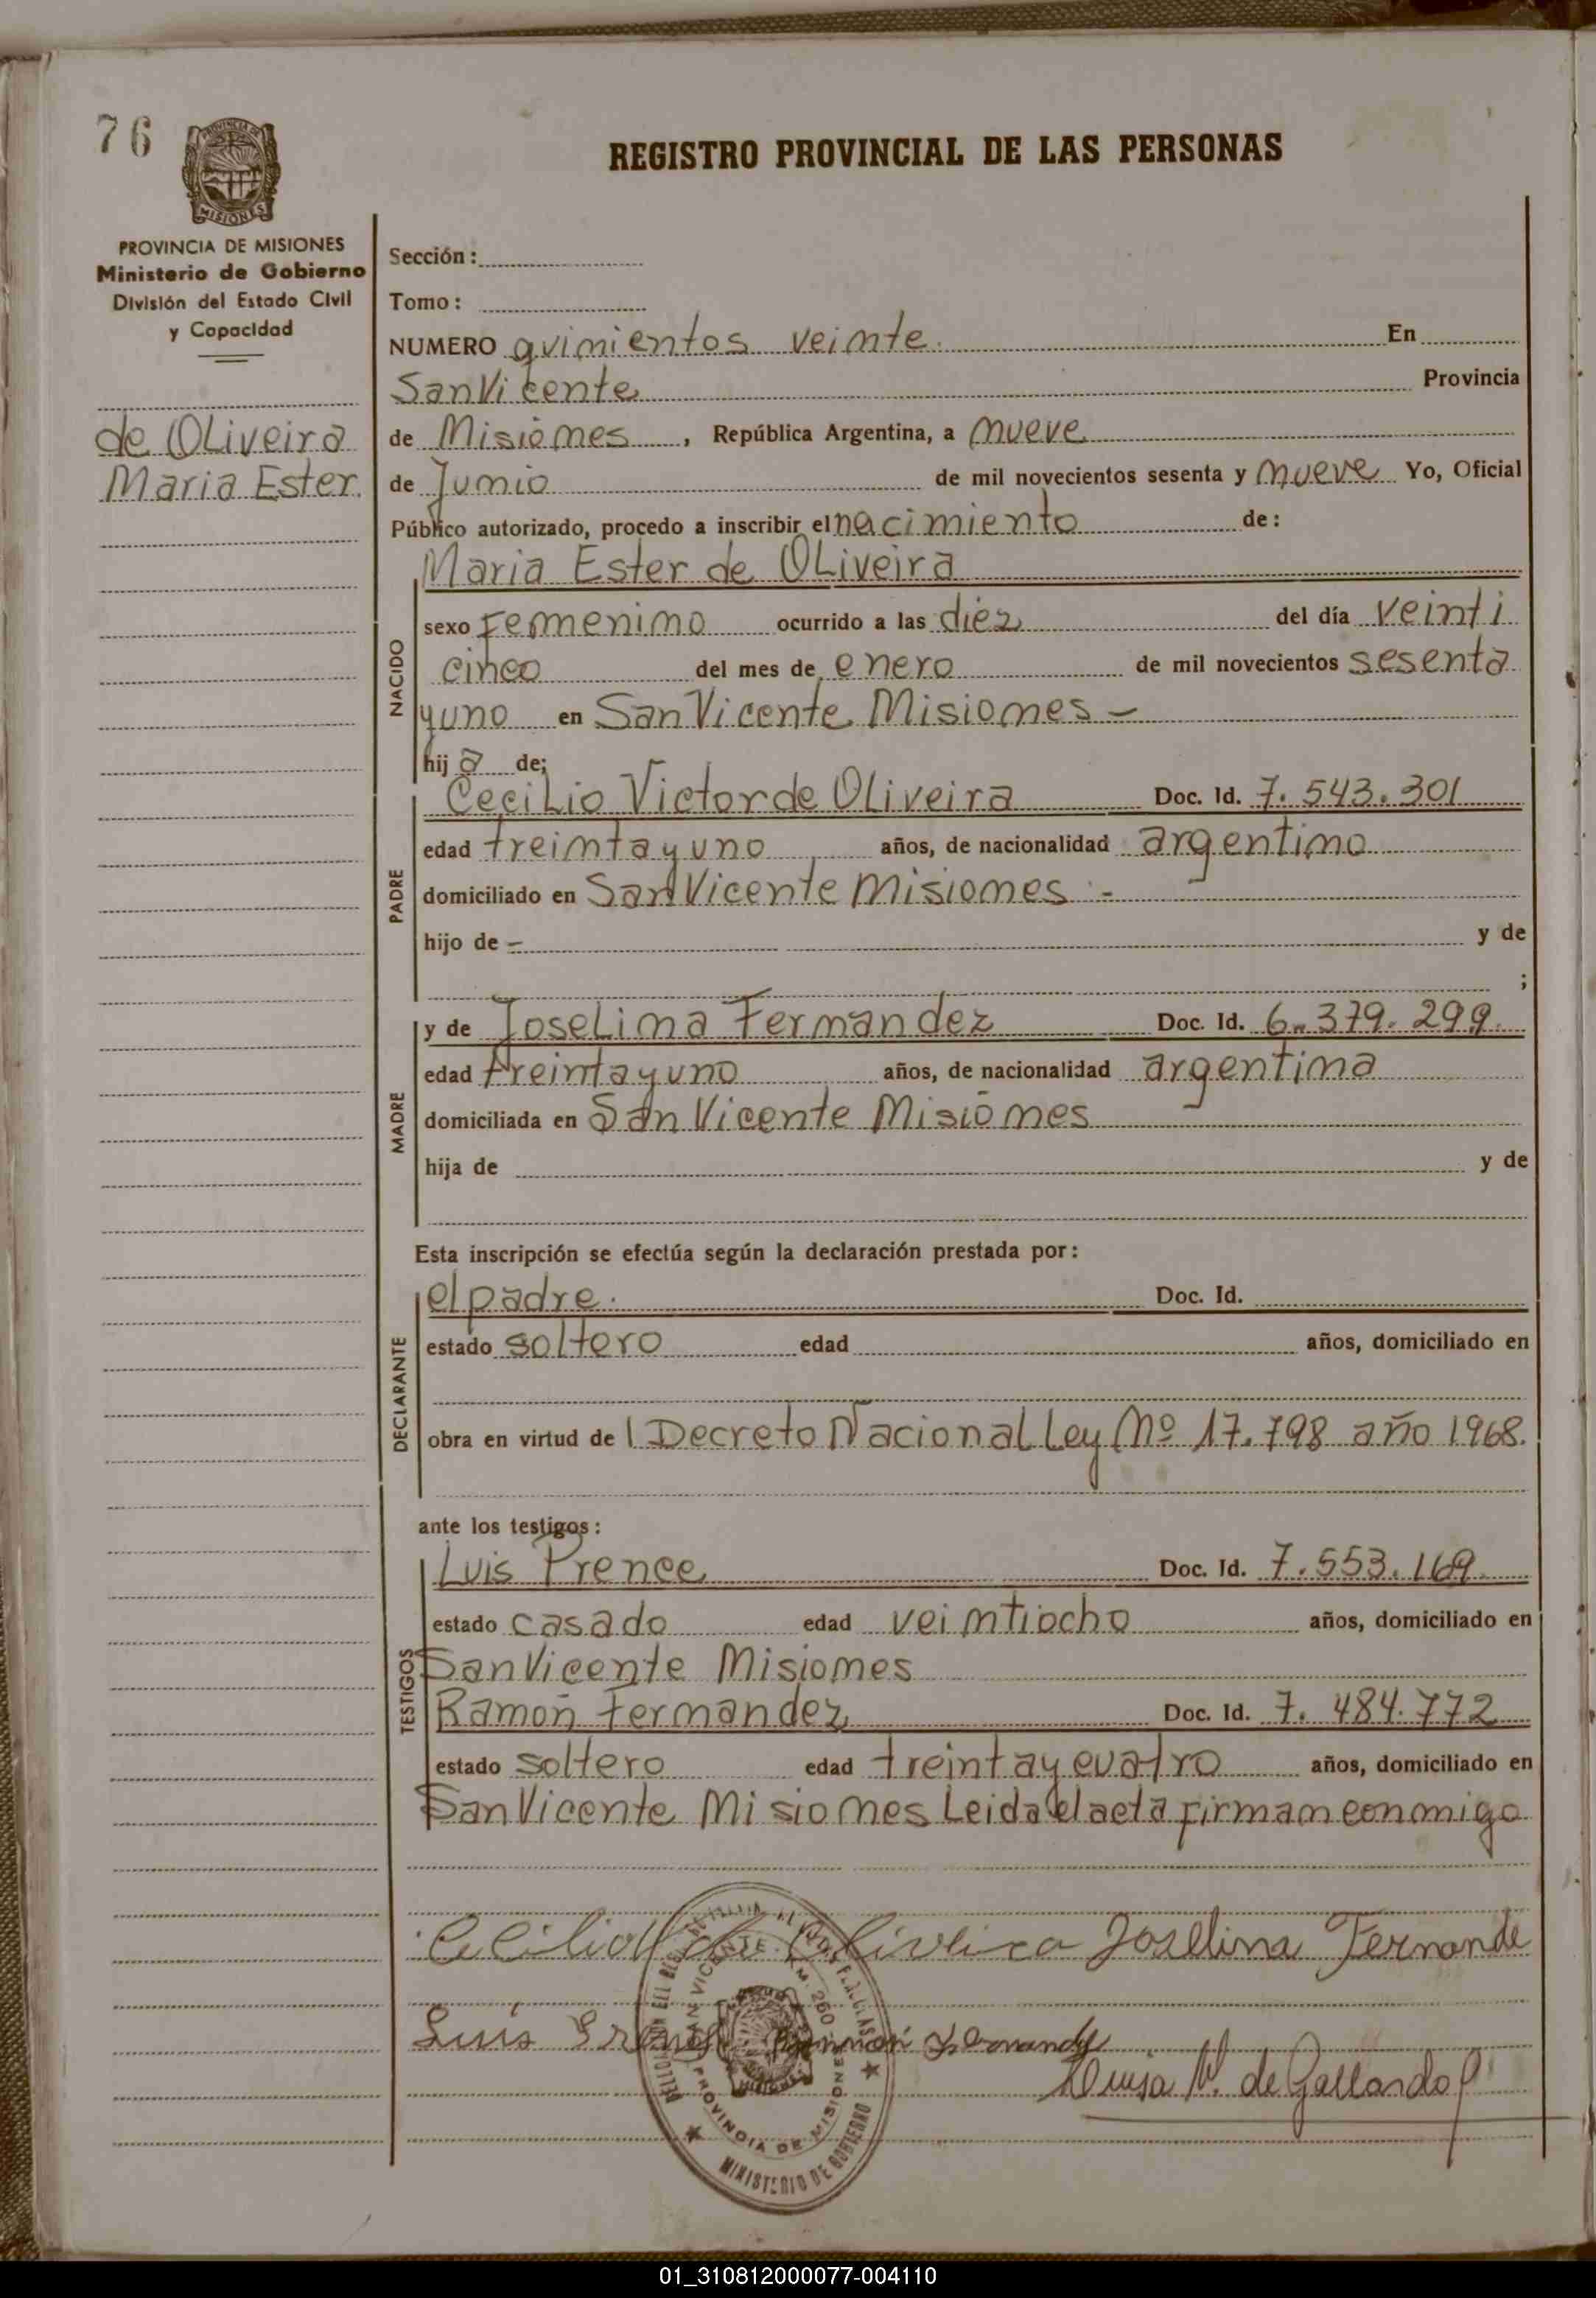 76
REGISTRO PROVINCIAL DE LAS PERSONAS
PROVINCIA DE MISIONES
Ministerio de Gobierno
División del Estado Civil
y Capacidad
de OLiveira
Maria Ester.
Sección:
Tomo:
NUMERO quimientos veimte. En
San Vicente Provincia
de Misiomes, República Argentina, a mueve
de Jumio de mil novecientos sesenta y mueve Yo, Oficial
Público autorizado, procedo a inscribir el nacimiento de:
NACIDO
Maria Ester de OLiveira
sexo Femenimo ocurrido a las diez del día veinti
cinco del mes de enero de mil novecientos sesenta
y uno en San Vicente Misiomes -
hij a de;
PADRE
CeciLio Victor de OLiveira Doc. Id. 7.543.301
edad treimta y uno años, de nacionalidad argentimo
domiciliado en San Vicente Misiomes -
hijo de - y de
;
MADRE
y de JoseLima Fermandez Doc. Id. 6.379.299.
edad treimta y uno años, de nacionalidad argentima
domiciliada en San Vicente Misiomes
hija de y de
Esta inscripción se efectúa según la declaración prestada por:
DECLARANTE
el padre. Doc. Id.
estado soltero edad años, domiciliado en
obra en virtud de l Decreto Nacional Ley Nº 17.798 año 1968.
ante los testigos:
TESTIGOS
Luis Prence Doc. Id. 7.553.169
estado casado edad veimtiocho años, domiciliado en
San Vicente Misiomes
Ramón Fermandez Doc. Id. 7.484.772
estado soltero edad treinta y cuatro años, domiciliado en
San Vicente Misiomes Leida el acta firmam conmigo
Cecilio V de Oliveira Joselina Fernande
Luis Prence Ramon Fernandez
Luisa V. de Gallardo
SAN VICENTE KM. 260
PROVINCIA DE MISIONES
MINISTERIO DE GOBIERNO
01_310812000077-004110